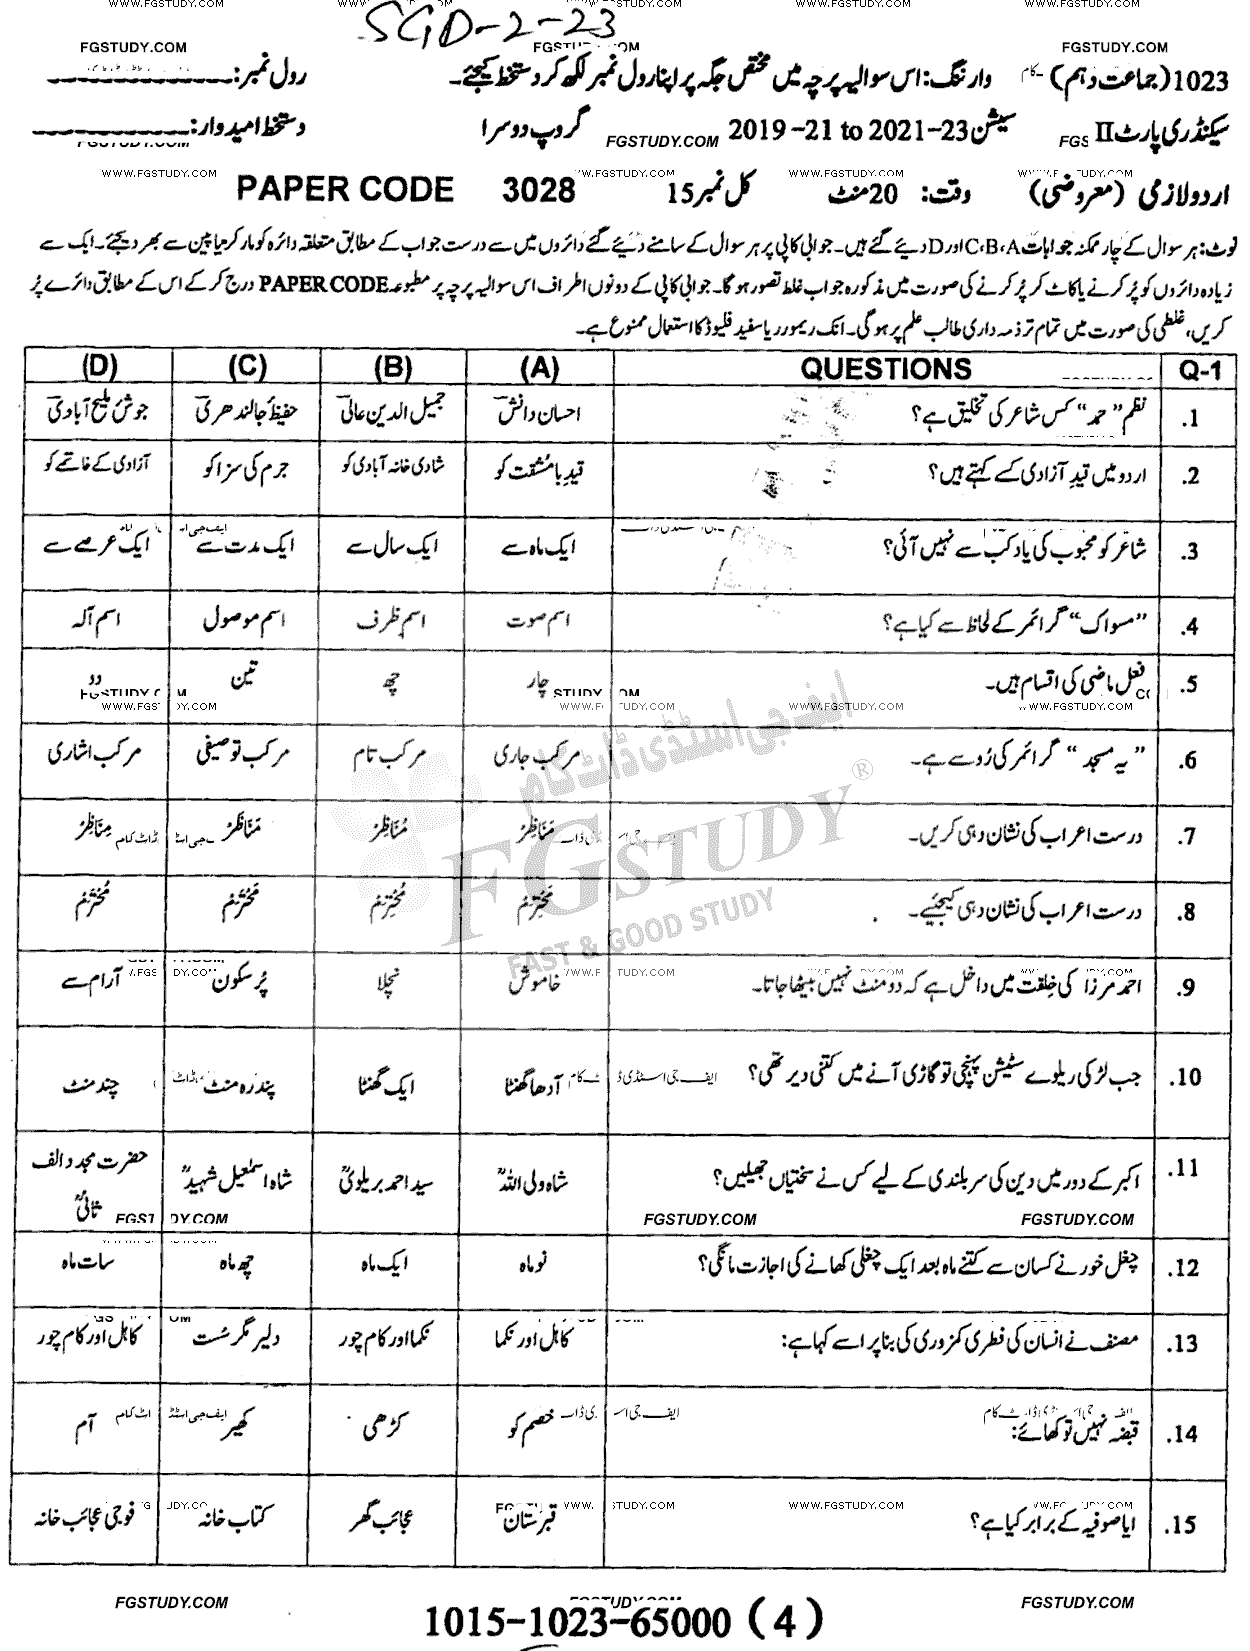 WWW.FGSTUDY.COM WWW.FGSTUDY.COM
SGD-2-23
FGSTUDY.COM FGSTUDY.COM FGSTUDY.COM
1023 (جماعت دہم) وارننگ: اس سوالیہ پرچہ میں مختص جگہ پر اپنا رول نمبر لکھ کر دستخط کیجئے۔ رول نمبر:
سیکنڈری پارٹ II سیشن 2019-21 to 2021-23 گروپ دوسرا دستخط امیدوار:
FGSTUDY.COM
اردو لازمی (معروضی) وقت: 20 منٹ کل نمبر 15 PAPER CODE 3028
نوٹ: ہر سوال کے چار ممکنہ جوابات C،B،A اور D دیئے گئے ہیں۔ جوابی کاپی پر ہر سوال کے سامنے دیئے گئے دائروں میں سے درست جواب کے مطابق متعلقہ دائرہ کو مارکر یا پین سے بھر دیجئے۔ ایک سے
زیادہ دائروں کو پُر کرنے یا کاٹ کر پُر کرنے کی صورت میں مذکورہ جواب غلط تصور ہوگا۔ جوابی کاپی کے دونوں اطراف اس سوالیہ پرچہ پر مطبوعہ PAPER CODE درج کر کے اس کے مطابق دائرے پُر
کریں، غلطی کی صورت میں تمام تر ذمہ داری طالب علم پر ہوگی۔ انک ریموور یا سفید فلیوڈ کا استعمال ممنوع ہے۔
Q-1 QUESTIONS (A) (B) (C) (D)
1. نظم "حمد" کس شاعر کی تخلیق ہے؟ احسان دانش جمیل الدین عالی حفیظ جالندھری جوش ملیح آبادی
2. اردو میں قیدِ آزادی کسے کہتے ہیں؟ قید بامشقت کو شادی خانہ آبادی کو جرم کی سزا کو آزادی کے خاتمے کو
3. شاعر کو محبوب کی یاد کب سے نہیں آئی؟ ایک ماہ سے ایک سال سے ایک مدت سے ایک عرصے سے
4. "مسواک" گرائمر کے لحاظ سے کیا ہے؟ اسم صوت اسم ظرف اسم موصول اسم آلہ
5. فعل ماضی کی اقسام ہیں۔ چار چھ تین دو
6. "یہ مسجد" گرائمر کی رُو سے ہے۔ مرکب جاری مرکب تام مرکب توصیفی مرکب اشاری
7. درست اعراب کی نشان دہی کریں۔ مَنَاظِرْ مُنَاظِرْ مَنَاظَرْ مِنَاظِرْ
8. درست اعراب کی نشان دہی کیجئیے۔ مَحْتِرَمْ مُحْتِرَمْ مَحْتَرَمْ مُحْتَرَمْ
9. احمد مرزا کی خِلقت میں داخل ہے کہ دو منٹ نہیں بیٹھا جاتا۔ خاموش نچلا پُرسکون آرام سے
10. جب لڑکی ریلوے سٹیشن پہنچی تو گاڑی آنے میں کتنی دیر تھی؟ آدھا گھنٹا ایک گھنٹا پندرہ منٹ چند منٹ
11. اکبر کے دور میں دین کی سربلندی کے لیے کس نے سختیاں جھیلیں؟ شاہ ولی اللہؒ سید احمد بریلویؒ شاہ اسمٰعیل شہیدؒ حضرت مجدد الف ثانیؒ
FGSTUDY.COM FGSTUDY.COM FGSTUDY.COM
12. چغل خور نے کسان سے کتنے ماہ بعد ایک چغلی کھانے کی اجازت مانگی؟ نو ماہ ایک ماہ چھ ماہ سات ماہ
13. مصنف نے انسان کی فطری کمزوری کی بنا پر اسے کہا ہے: کاہل اور نکما نکما اور کام چور دلیر مگر سُست کاہل اور کام چور
14. قبضہ نہیں تو کھائے: خصم کو کڑھی کھیر آم
15. ایا صوفیہ کے برابر کیا ہے؟ قبرستان عجائب گھر کتاب خانہ فوجی عجائب خانہ
ایف جی اسٹڈی ڈاٹ کام
FGSTUDY ®
FAST & GOOD STUDY
FGSTUDY.COM FGSTUDY.COM
1015-1023-65000 (4)